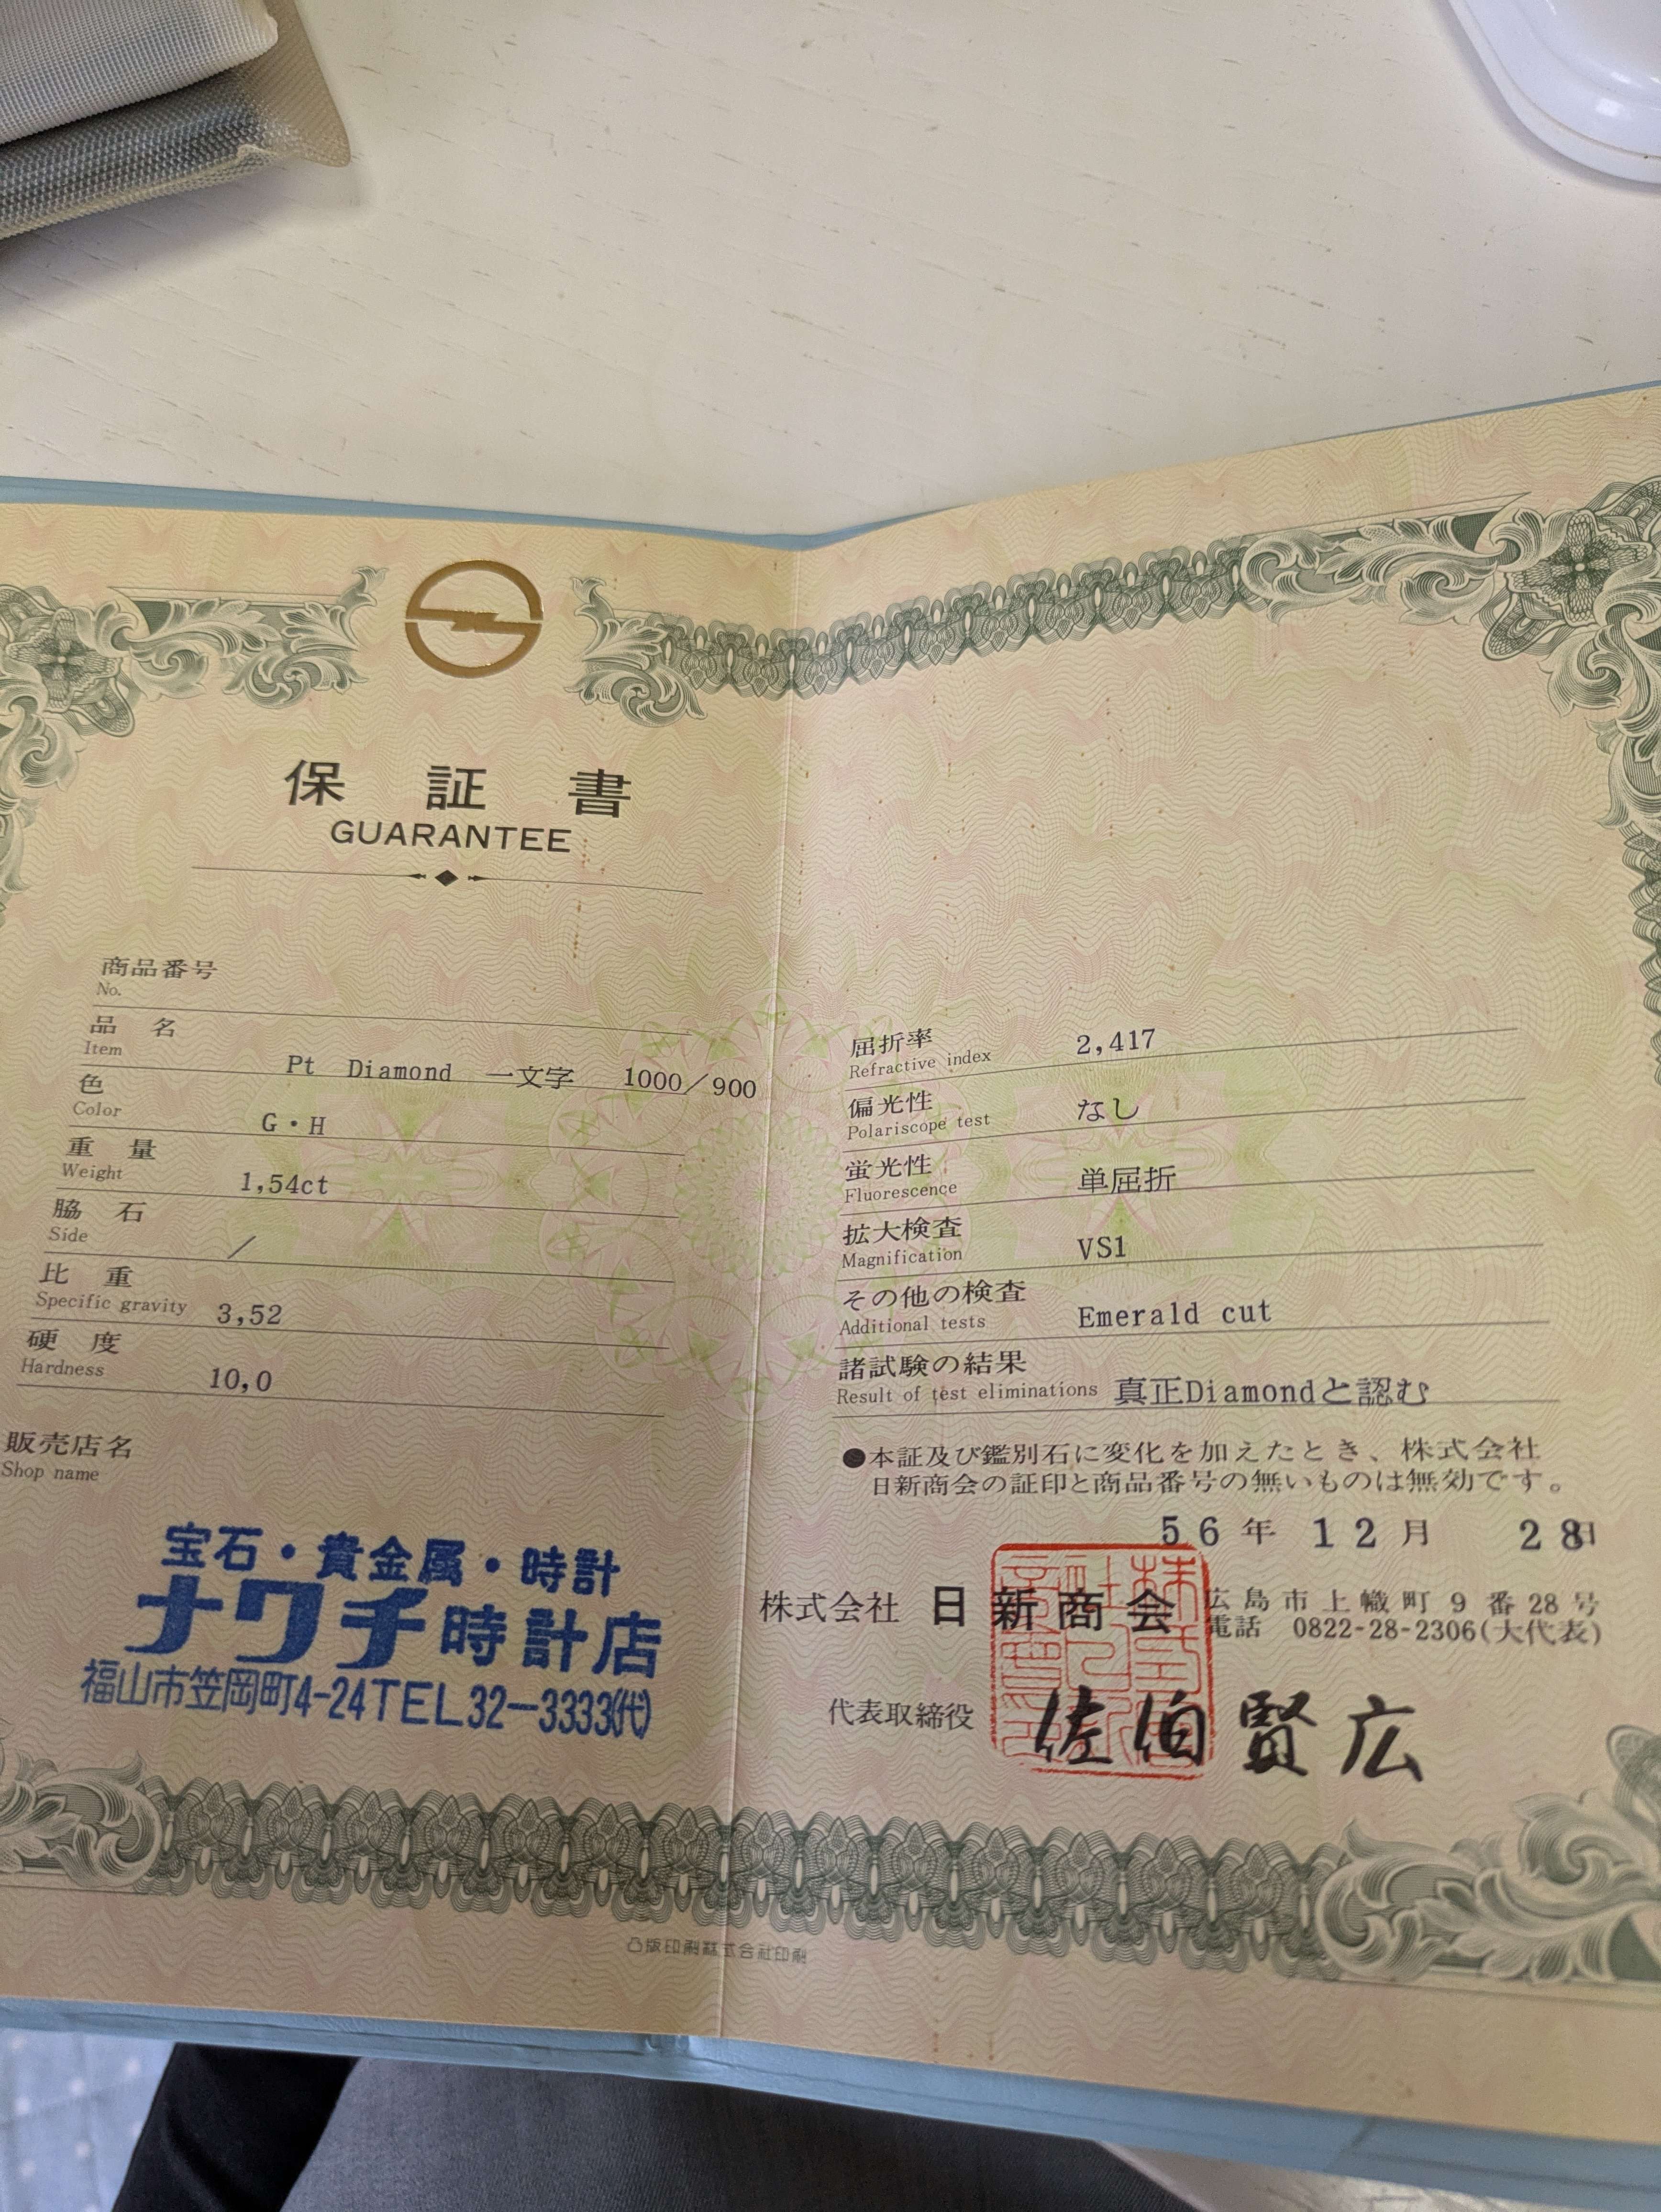 保証書
GUARANTEE
商品番号
No.
品名
Item
Pt Diamond 一文字 1000/900
色
Color
G・H
重量
Weight
1,54ct
脇石
Side
/
比重
Specific gravity
3,52
硬度
Hardness
10,0
販売店名
Shop name
宝石・貴金属・時計
ナワチ時計店
福山市笠岡町4-24TEL32-3333(代)
屈折率
Refractive index
2,417
偏光性
Polariscope test
なし
蛍光性
Fluorescence
単屈折
拡大検査
Magnification
VS1
その他の検査
Additional tests
Emerald cut
諸試験の結果
Result of test eliminations
真正Diamondと認む
●本証及び鑑別石に変化を加えたとき、株式会社
日新商会の証印と商品番号の無いものは無効です。
56年12月 28日
株式会社 日新商会
広島市上幟町9番28号
電話 0822-28-2306(大代表)
代表取締役 佐伯賢広
凸版印刷株式会社印刷